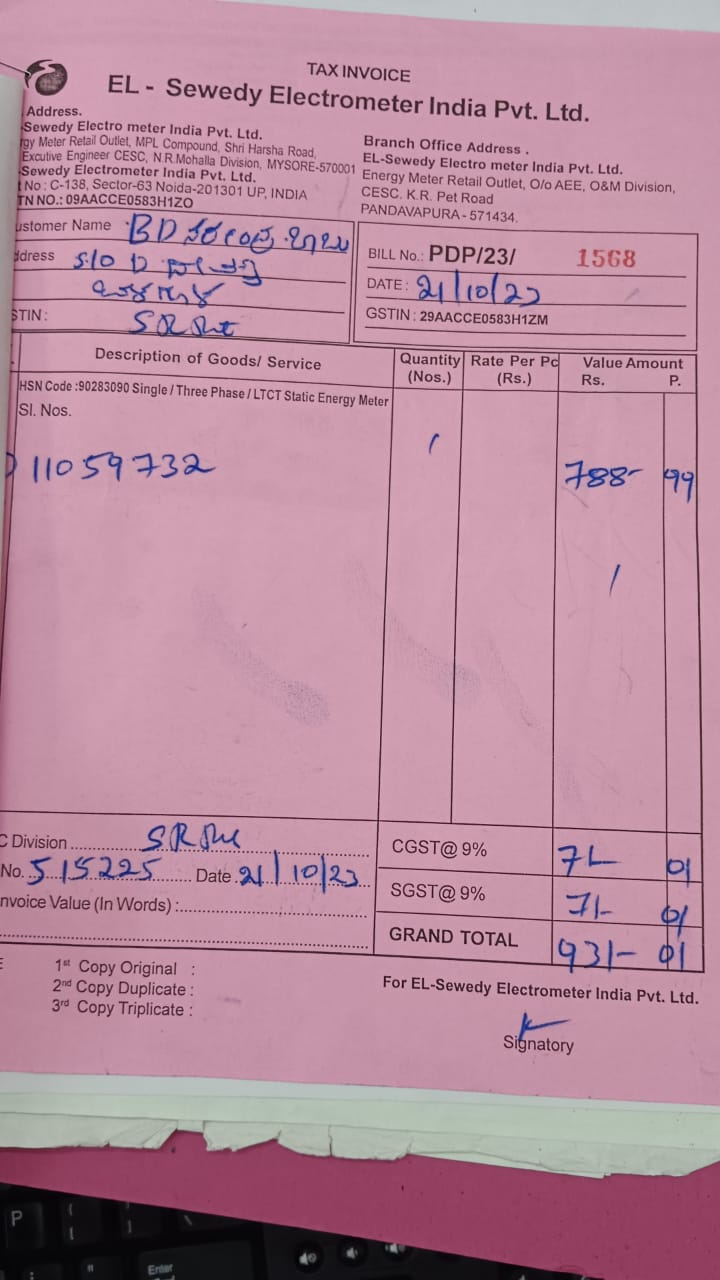 TAX INVOICE
EL - Sewedy Electrometer India Pvt. Ltd.
Address.
Sewedy Electro meter India Pvt. Ltd.
gy Meter Retail Outlet, MPL Compound, Shri Harsha Road,
Excutive Engineer CESC, N.R.Mohalla Division, MYSORE-570001
Sewedy Electrometer India Pvt. Ltd.
t No : C-138, Sector-63 Noida-201301 UP, INDIA
TN NO.: 09AACCE0583H1ZO
Branch Office Address .
EL-Sewedy Electro meter India Pvt. Ltd.
Energy Meter Retail Outlet, O/o AEE, O&M Division,
CESC. K.R. Pet Road
PANDAVAPURA - 571434.
ustomer Name BD
ddress S/O D
STIN :
BILL No.: PDP/23/ 1568
DATE : 21/10/23
GSTIN : 29AACCE0583H1ZM
Description of Goods/ Service Quantity (Nos.) Rate Per Pc (Rs.) Value Amount Rs. P.
HSN Code :90283090 Single / Three Phase / LTCT Static Energy Meter
Sl. Nos.
11059732 1 788- 99
C Division
No. 515225 Date 21/10/23
nvoice Value (In Words) :
CGST@ 9% 71- 01
SGST@ 9% 71- 01
GRAND TOTAL 931- 01
1st Copy Original :
2nd Copy Duplicate :
3rd Copy Triplicate :
For EL-Sewedy Electrometer India Pvt. Ltd.
Signatory
P
Enter